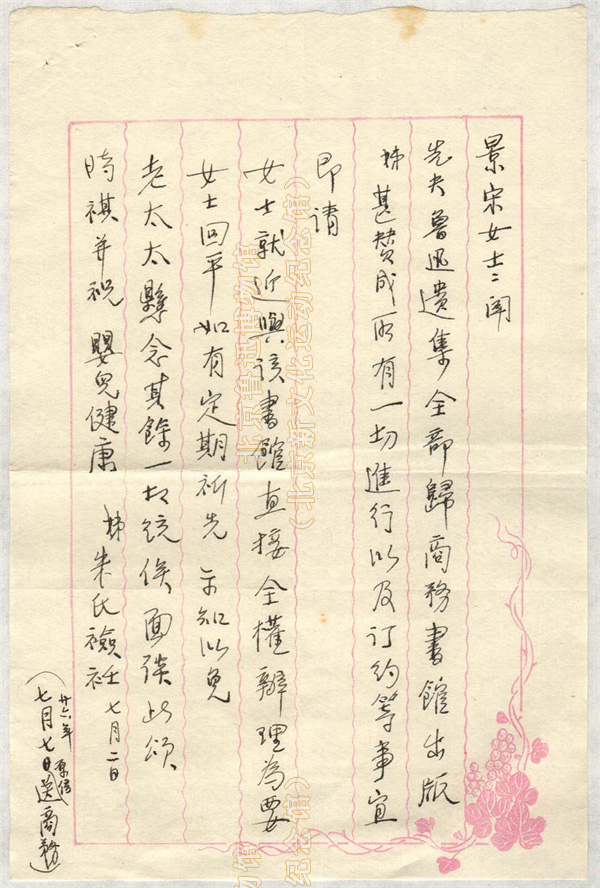 景宋女士:闻
先夫鲁迅遗集全部归商务书馆出版
姊甚赞成所有一切進行以及订约等事宜
即请
女士就近與该書館直接全權辦理為要
女士回平如有定期祈先示知以免
老太太懸念其餘一切统俟面谈此颂
時祺并祝 嬰兒健康 姊朱氏襝衽 七月二日
廿六年
(七月七日原信送商務)
北京鲁迅博物馆
(北京新文化运动纪念馆)